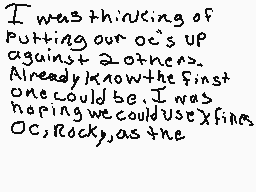 I was thinking of
putting our oc's up
against 2 others.
Already know the first
one could be. I was
hoping we could use Xfires
OC, Rocky, as the